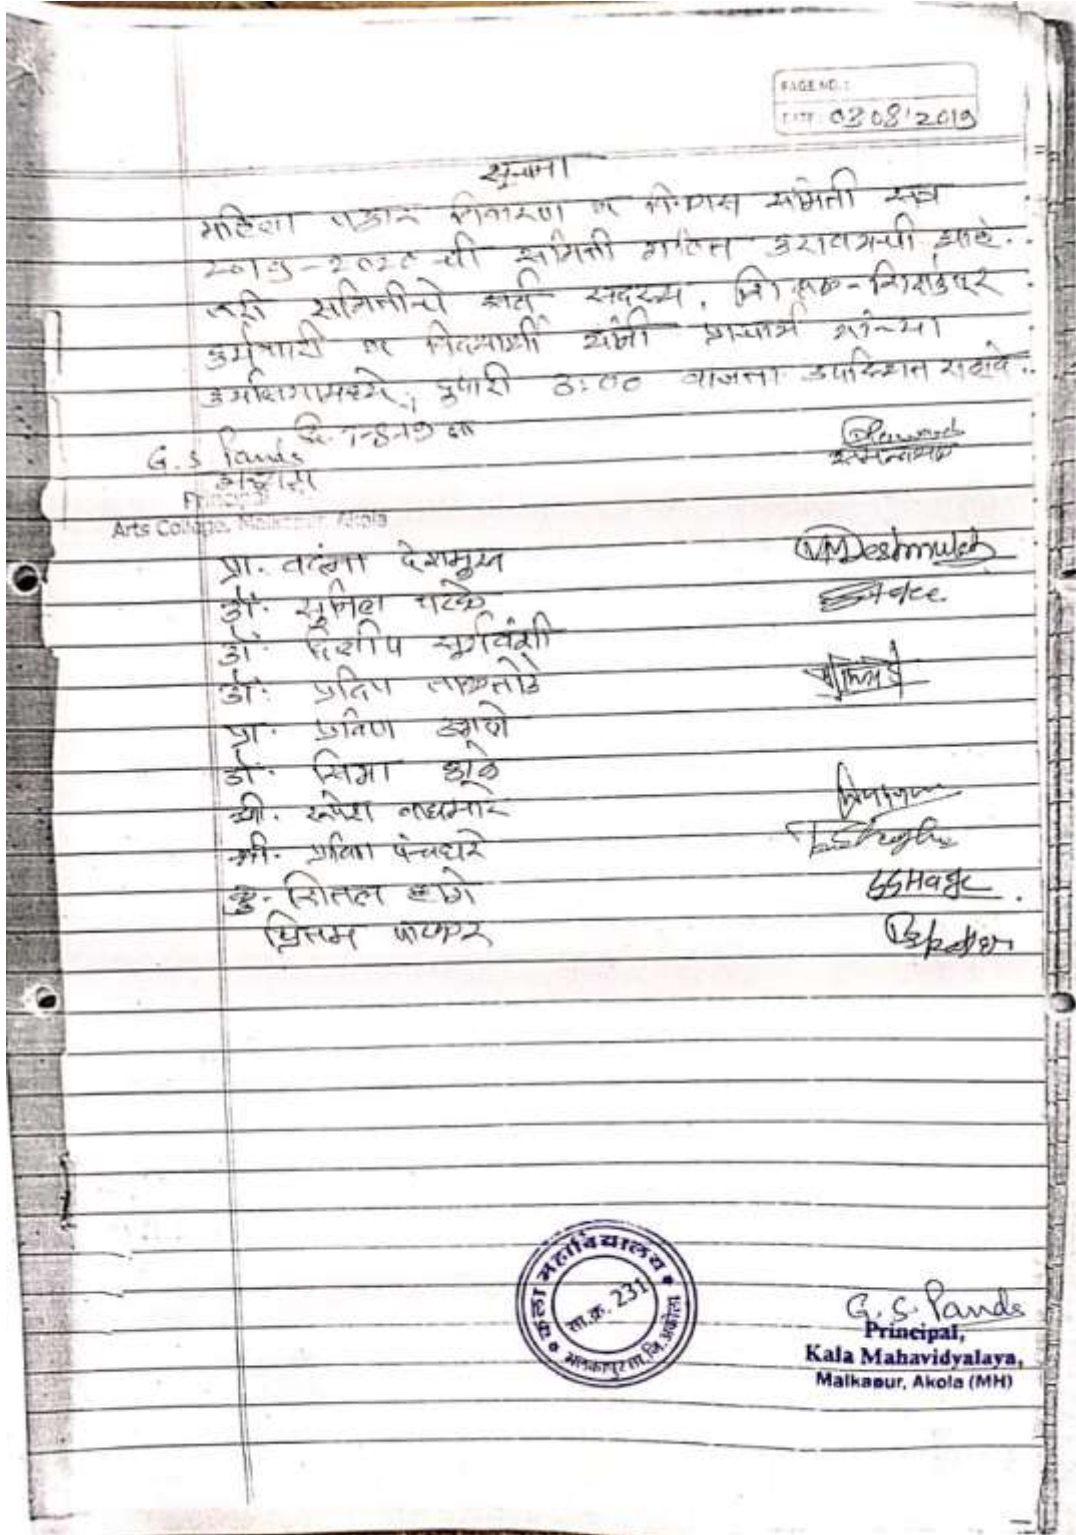 PAGE NO. :
DATE : 03 08 2019
सूचना
महिला तक्रार निवारण व विकास समिती सत्र
२०१९-२०२० ची समिती गठित करावयाची आहे.
तरी समितीचे सर्व सदस्य, शिक्षक-शिक्षकेत्तर
कर्मचारी व विद्यार्थी यांनी प्राचार्य यांच्या
कार्यालयामध्ये, दुपारी ३:०० वाजता उपस्थित रहावे.
दि. 7-8-19 ला
G. S Pande
अध्यक्ष
समन्वयक
Principal
Arts College, Malkapur, Akola
प्रा. वंदना देशमुख VMDeshmukh
डॉ. सुनिल घटके
डॉ. दिलीप सूर्यवंशी
डॉ. प्रदिप ताकतोडे
प्रा. प्रविण
डॉ. सिमा
श्री. रुपेश वाघमारे
श्री. प्रविण पंचघरे
कु. शितल हागे SSHage
प्रितम पाटकर
कला महाविद्यालय
सा.क्र. 231
मलकापूर ता.जि.अकोला
G. S. Pande
Principal,
Kala Mahavidyalaya,
Malkapur, Akola (MH)